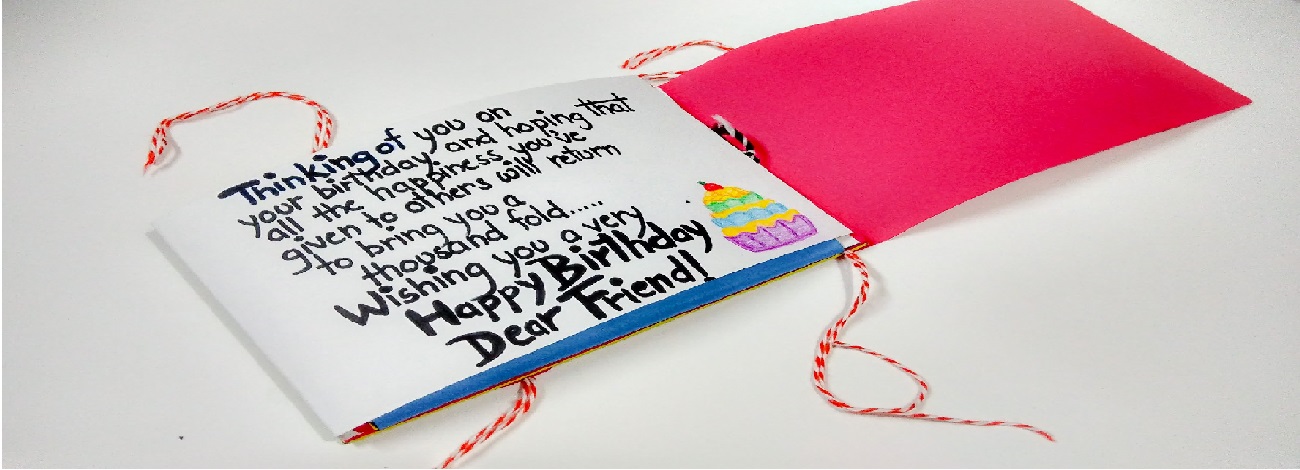 Thinking of you on
your birthday and hoping that
all the happiness you've
given to others will return
to bring you a
thousand fold.....
Wishing you a very
Happy Birthday
Dear Friend!